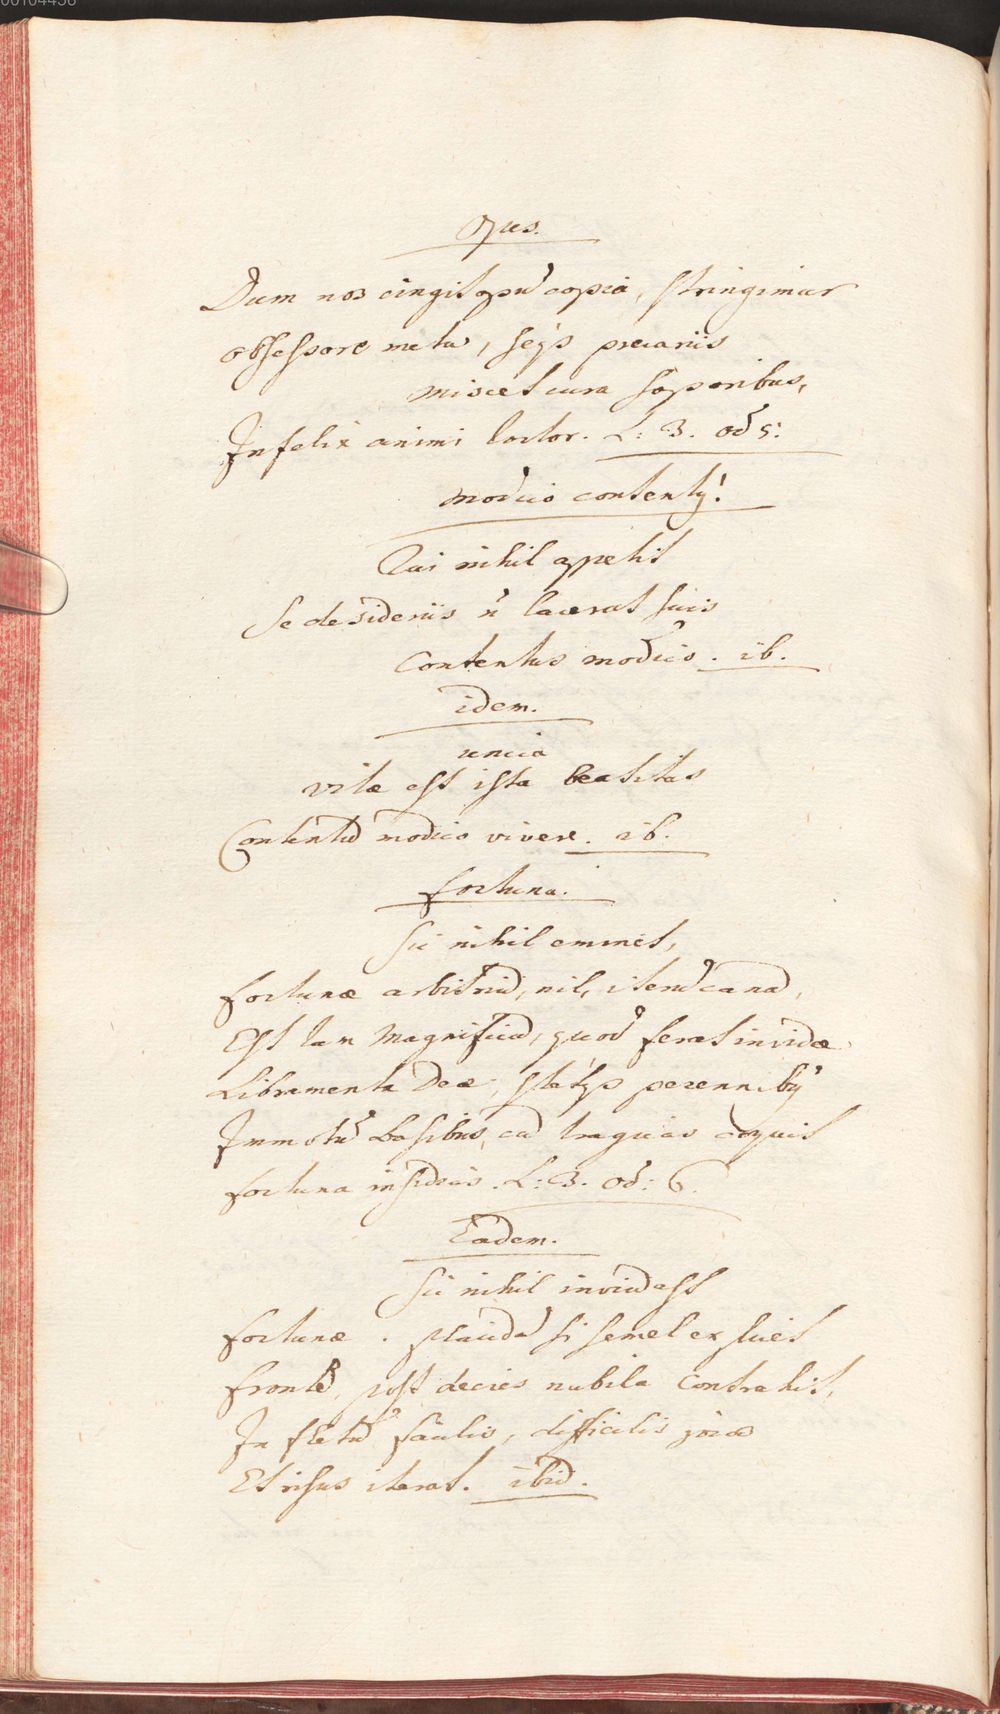 00104436
Opes.
Dum nos cingit opũ copia, stringimur
obsessore metu, seqs precariis
miscet cura soporibus,
Infelix animi tortor. L: 3. od 5:
modico contentq!
Qui nihil appetit
Se desideriis ñ lacerat suis
Contentus modicis. ib.
idem.
unica
vitæ est ista beatitas
Contentũ modico vivere. ib.
fortuna.
Sic nihil eminet,
fortunæ arbitriũ, nil,
Est tam Magnificũ, quod ferat invidæ
Libramenta Deæ; statqs perennibq
Immotũ basibus, cũ
fortuna insidiis. L: 3. Od: 6.
Eadem.
Sic nihil inviũ est
fortunæ. placidã si semel exsuit
frontẽ, post decies nubila contrahit,
In fletũ facilis, difficilis jocos
Et risus iterat. ibid.